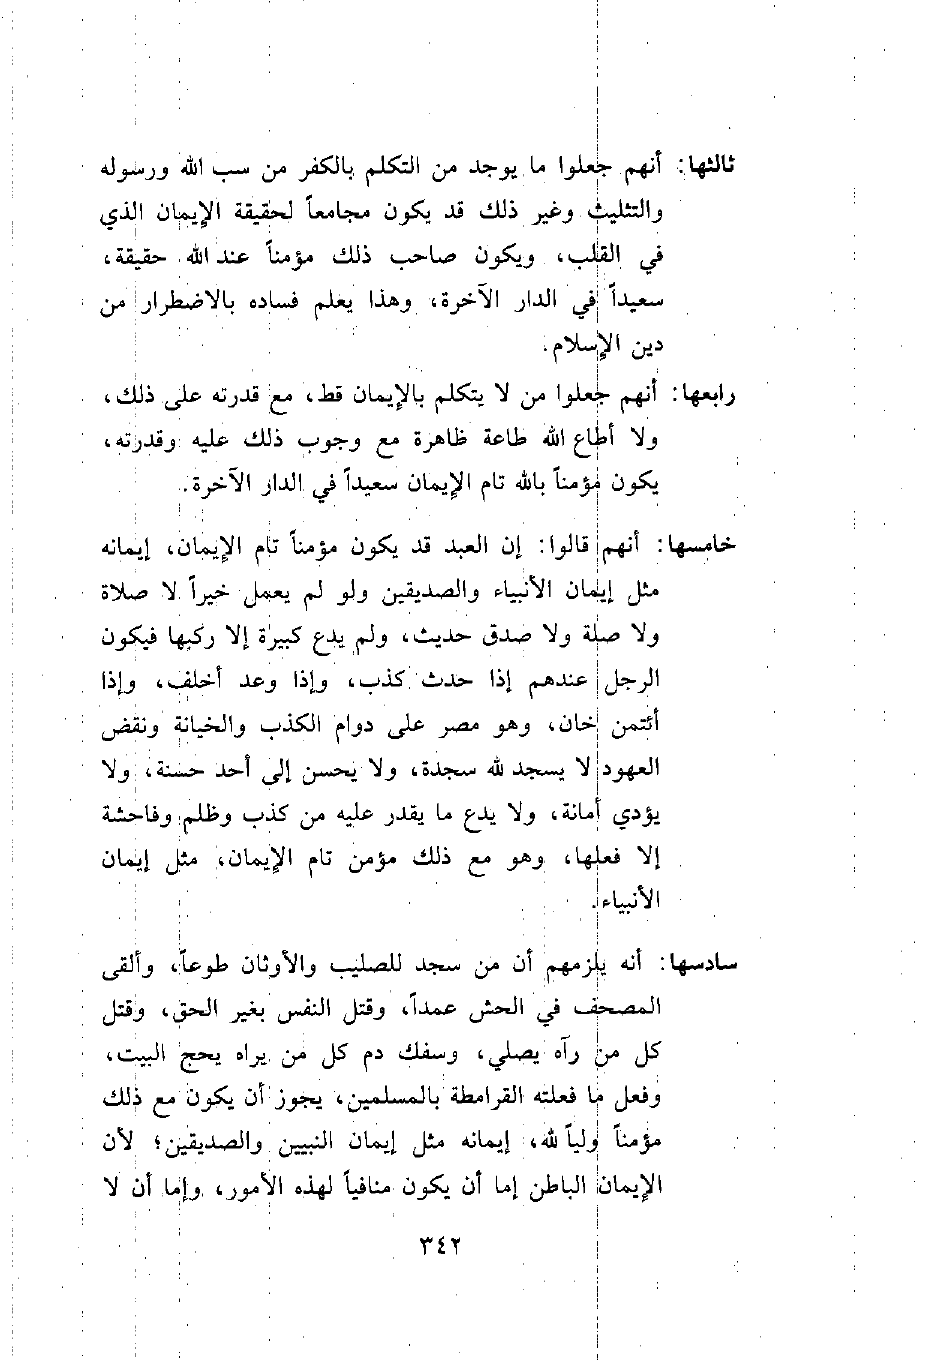 ثالثها: أنهم جعلوا ما يوجد من التكلم بالكفر من سب الله ورسوله
والتثليث وغير ذلك قد يكون مجامعاً لحقيقة الإيمان الذي
في القلب، ويكون صاحب ذلك مؤمناً عند الله حقيقة،
سعيداً في الدار الآخرة، وهذا يعلم فساده بالاضطرار من
دين الإسلام.
رابعها: أنهم جعلوا من لا يتكلم بالإيمان قط، مع قدرته على ذلك،
ولا أطاع الله طاعة ظاهرة مع وجوب ذلك عليه وقدرته،
يكون مؤمناً بالله تام الإيمان سعيداً في الدار الآخرة.
خامسها: أنهم قالوا: إن العبد قد يكون مؤمناً تام الإيمان، إيمانه
مثل إيمان الأنبياء والصديقين ولو لم يعمل خيراً لا صلاة
ولا صلة ولا صدق حديث، ولم يدع كبيرة إلا ركبها فيكون
الرجل عندهم إذا حدث كذب، وإذا وعد أخلف، وإذا
أئتمن خان، وهو مصر على دوام الكذب والخيانة ونقض
العهود لا يسجد لله سجدة، ولا يحسن إلى أحد حسنة، ولا
يؤدي أمانة، ولا يدع ما يقدر عليه من كذب وظلم وفاحشة
إلا فعلها، وهو مع ذلك مؤمن تام الإيمان، مثل إيمان
الأنبياء.
سادسها: أنه يلزمهم أن من سجد للصليب والأوثان طوعاً، وألقى
المصحف في الحش عمداً، وقتل النفس بغير الحق، وقتل
كل من رآه يصلي، وسفك دم كل من يراه يحج البيت،
وفعل ما فعلته القرامطة بالمسلمين، يجوز أن يكون مع ذلك
مؤمناً ولياً لله، إيمانه مثل إيمان النبيين والصديقين؛ لأن
الإيمان الباطن إما أن يكون منافياً لهذه الأمور، وإما أن لا
٣٤٢